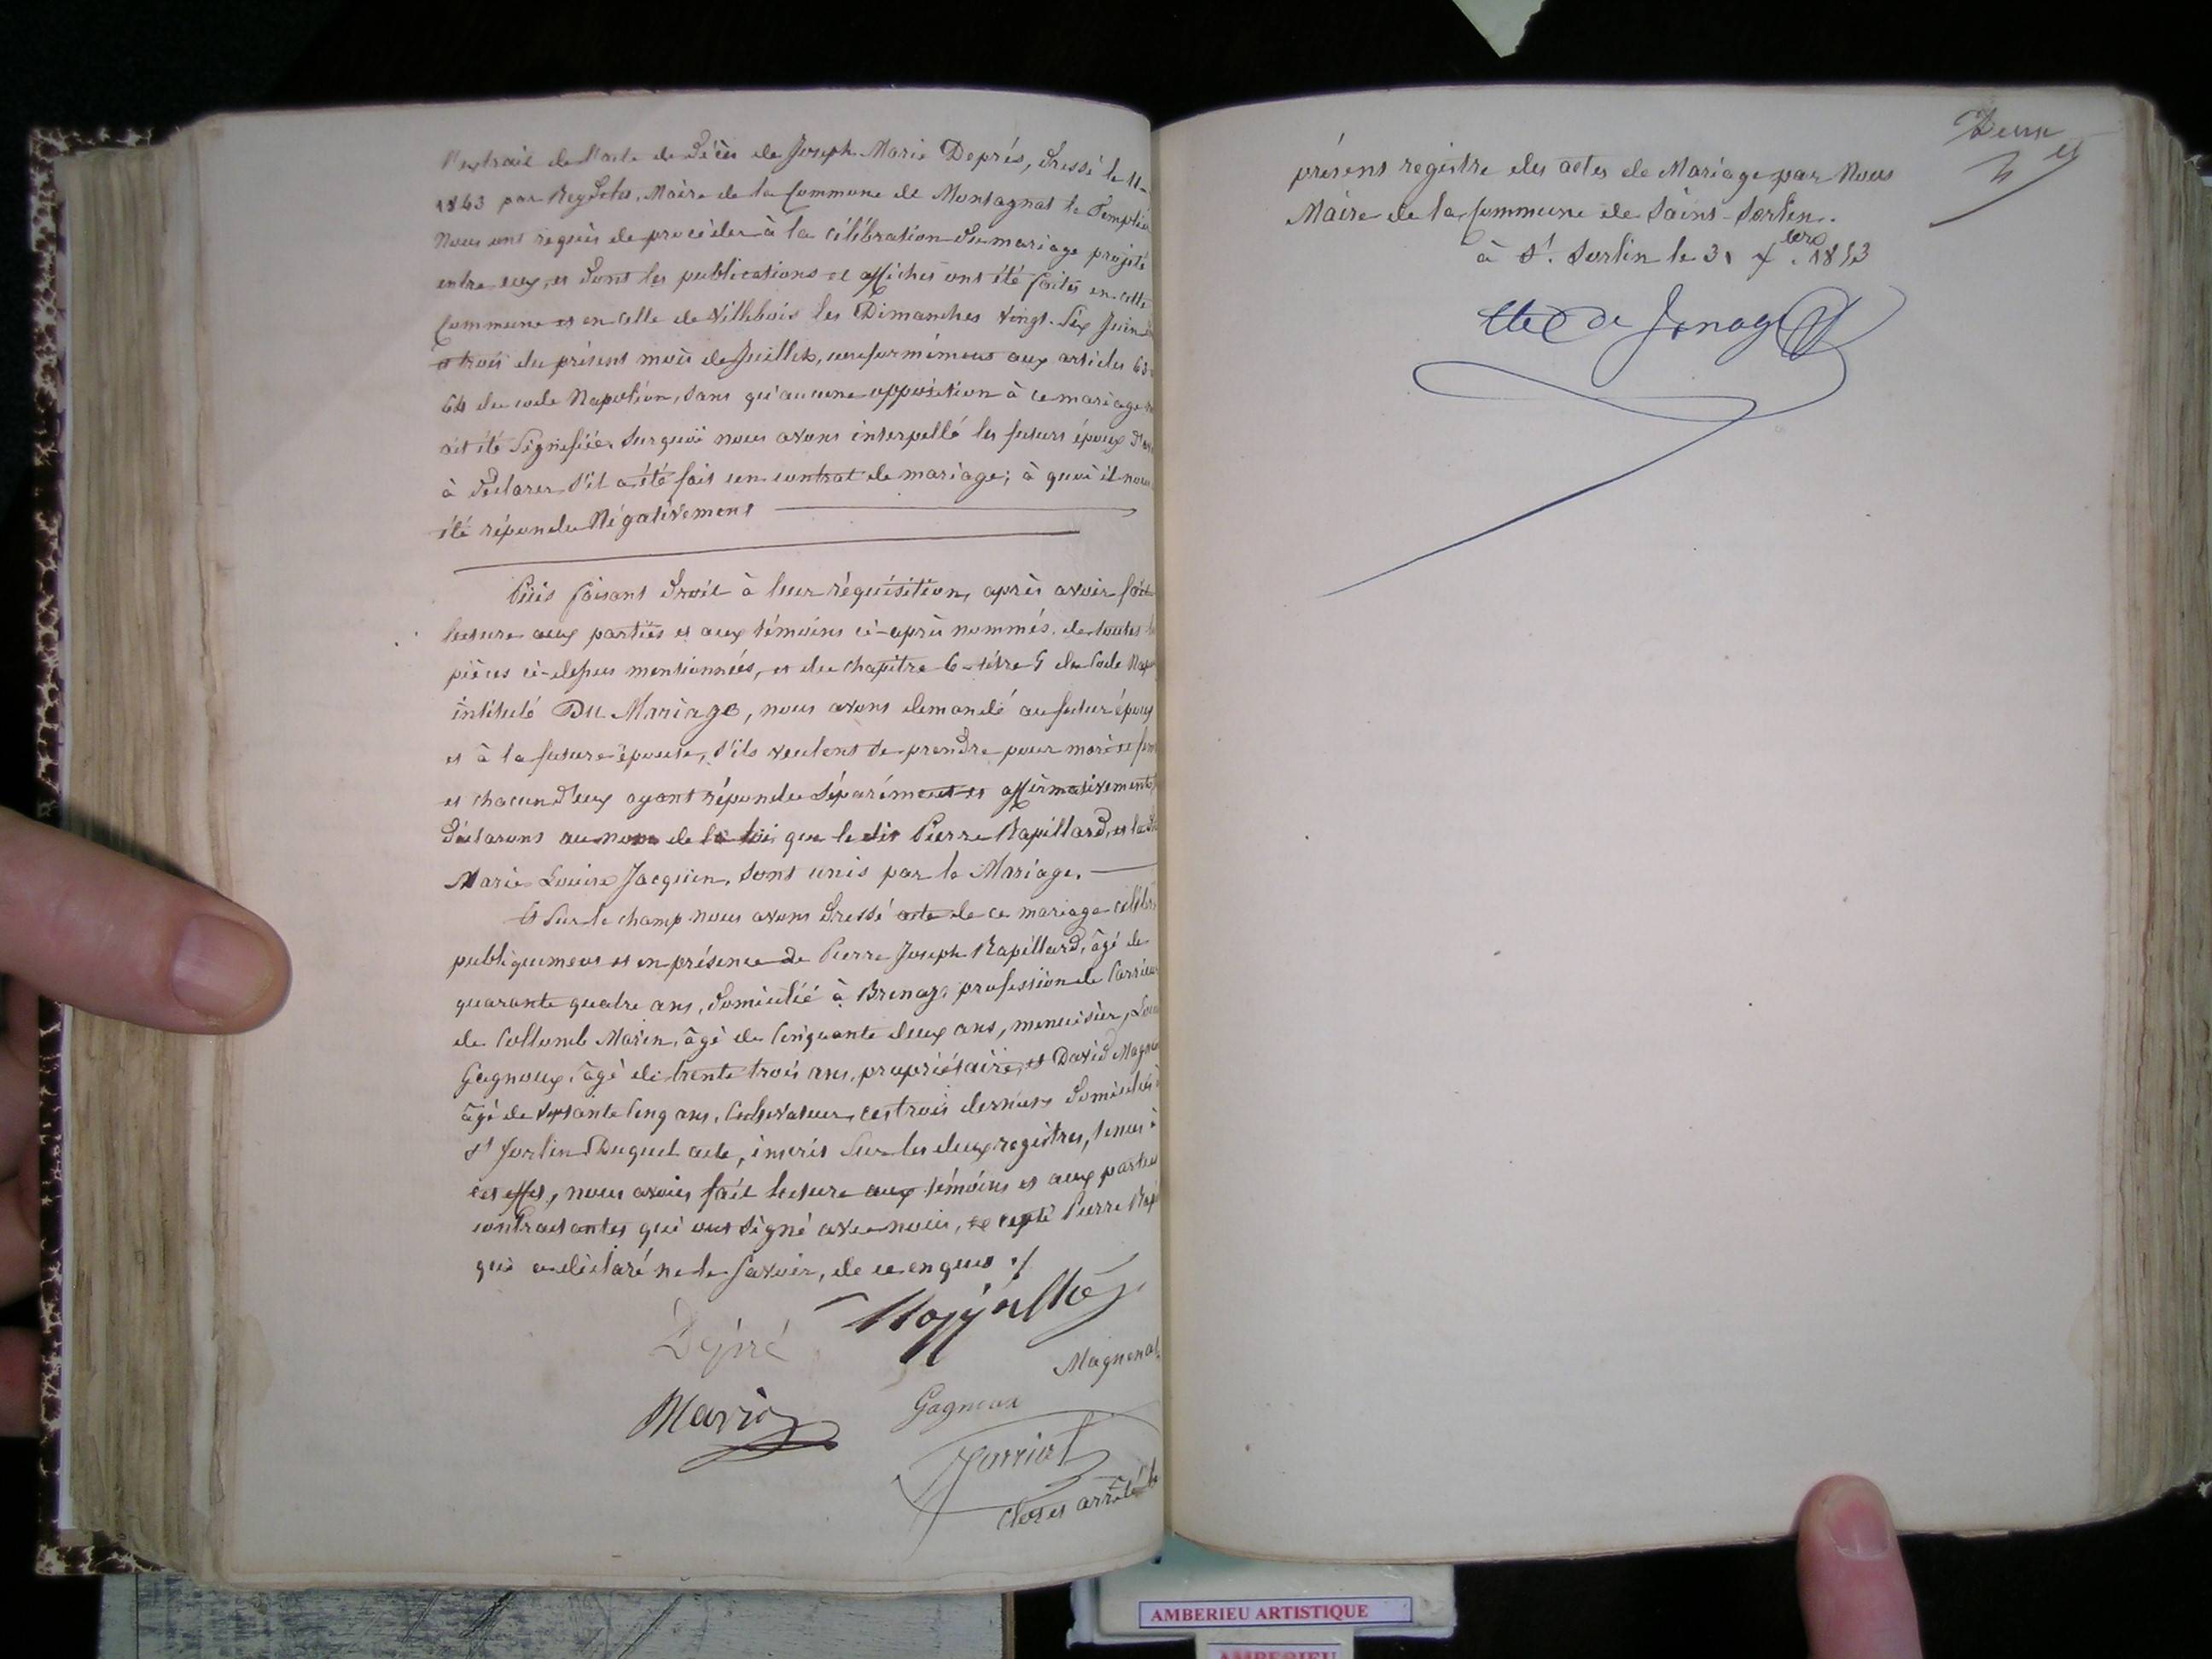 l'extrait de l'acte de décès de Joseph Marie Deprés, dressé le 11
1843 par Reydelet, Maire de la Commune de Montagnat le Templier
Nous ont requis de procéder à la célébration du mariage projeté
entre eux, et dont les publications et affiches ont été faites en cette
Commune et en celle de Villebois les Dimanches vingt-six Juin
et trois du présent mois de Juillet, conformément aux articles 63
64 du code Napoléon, sans qu'aucune opposition à ce mariage
ait été signifiée. Sur quoi nous avons interpellé les futurs époux d'av
à déclarer s'il a été fait un contrat de mariage; à quoi il nous
été répondu Négativement
Puis faisant droit à leur réquisition, après avoir fait
lecture aux parties et aux témoins ci-après nommés, de toutes
pièces ci-dessus mentionnées, et du chapitre 6 - titre 5 du Code Nap
intitulé Du Mariage, nous avons demandé au futur époux
et à la future épouse, s'ils veulent se prendre pour mari et fem
et chacun d'eux ayant répondu séparément et affirmativement
déclarons au nom de la loi que le dit Pierre Rapillard, et la d
Marie Louise Jacquin, sont unis par le Mariage.
Et sur le champ nous avons dressé acte de ce mariage célébré
publiquement et en présence de Pierre Joseph Rapillard, âgé de
quarante quatre ans, domicilié à Brenaz profession de Carrieur
de Collomb Marin, âgé de cinquante deux ans, menuisier, Lou
Gagneux, âgé de trente trois ans, propriétaire, et David Magne
âgé de septante cinq ans, Cultivateur, ces trois derniers domiciliés à
St Sorlin Duquel acte, inscrit sur les deux registres, tenus à
cet effet, nous avons fait lecture aux témoins et aux parties
contractantes qui ont signé avec nous, excepté Pierre Rap
qui a déclaré ne le savoir, de ce enquis ./
Dépré
Magnenat
Marin
Gagneux
Clos et arrêté le
présent registre des actes de Mariage par Nous
Maire de la Commune de Saint-Sorlin.
à St. Sorlin le 31 Xbre 1853